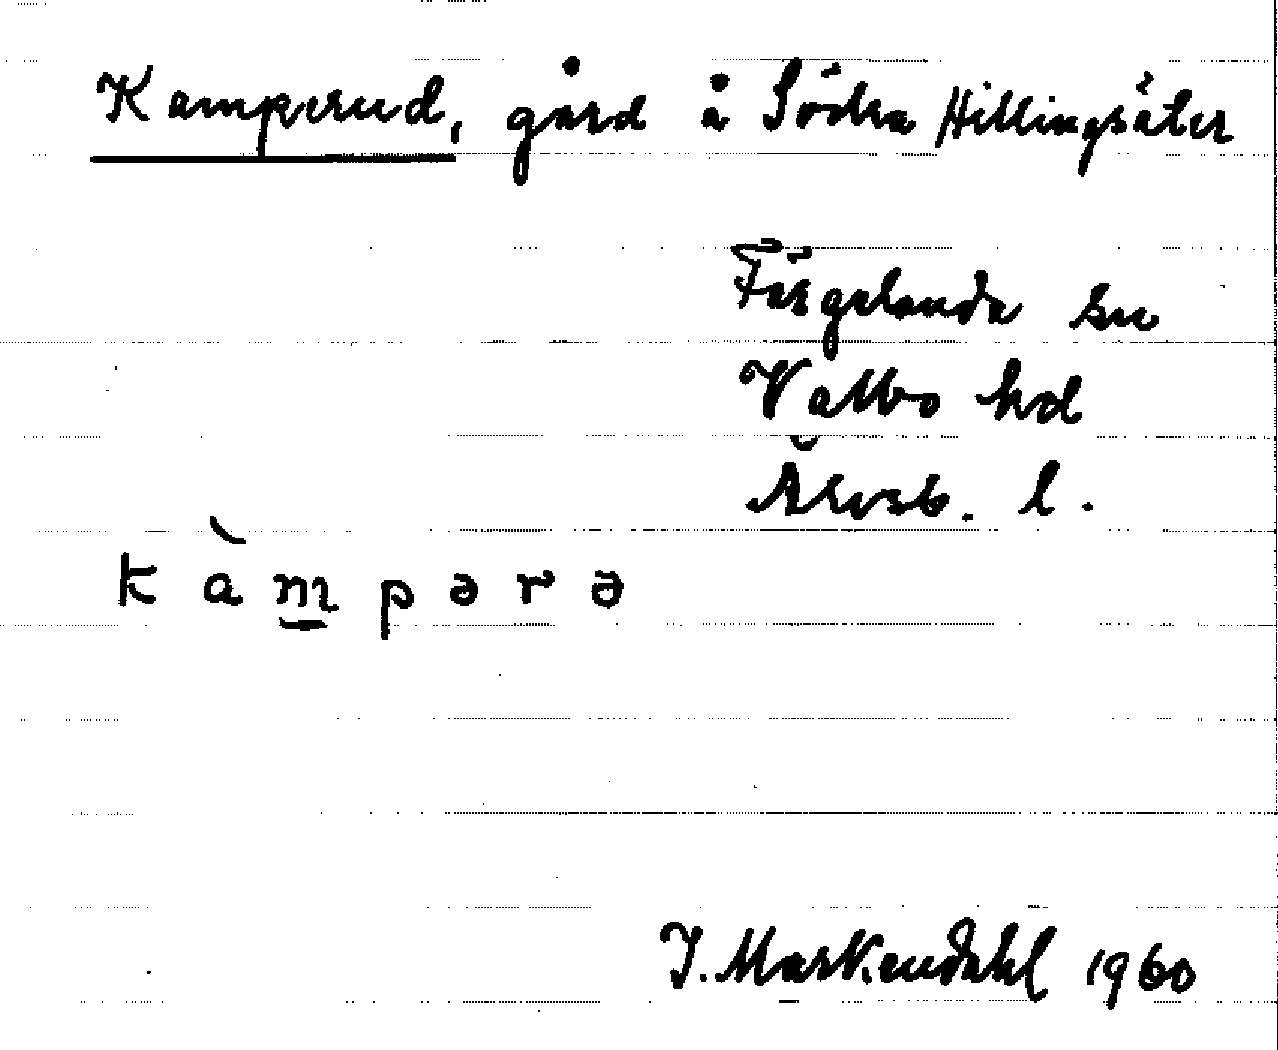 Kamperud, gård å Södra Hillingsäter
Färgelanda sn
Valbo hd
Älvsb. l.
k à m̲ p ə r ə
I. Markendahl 1960